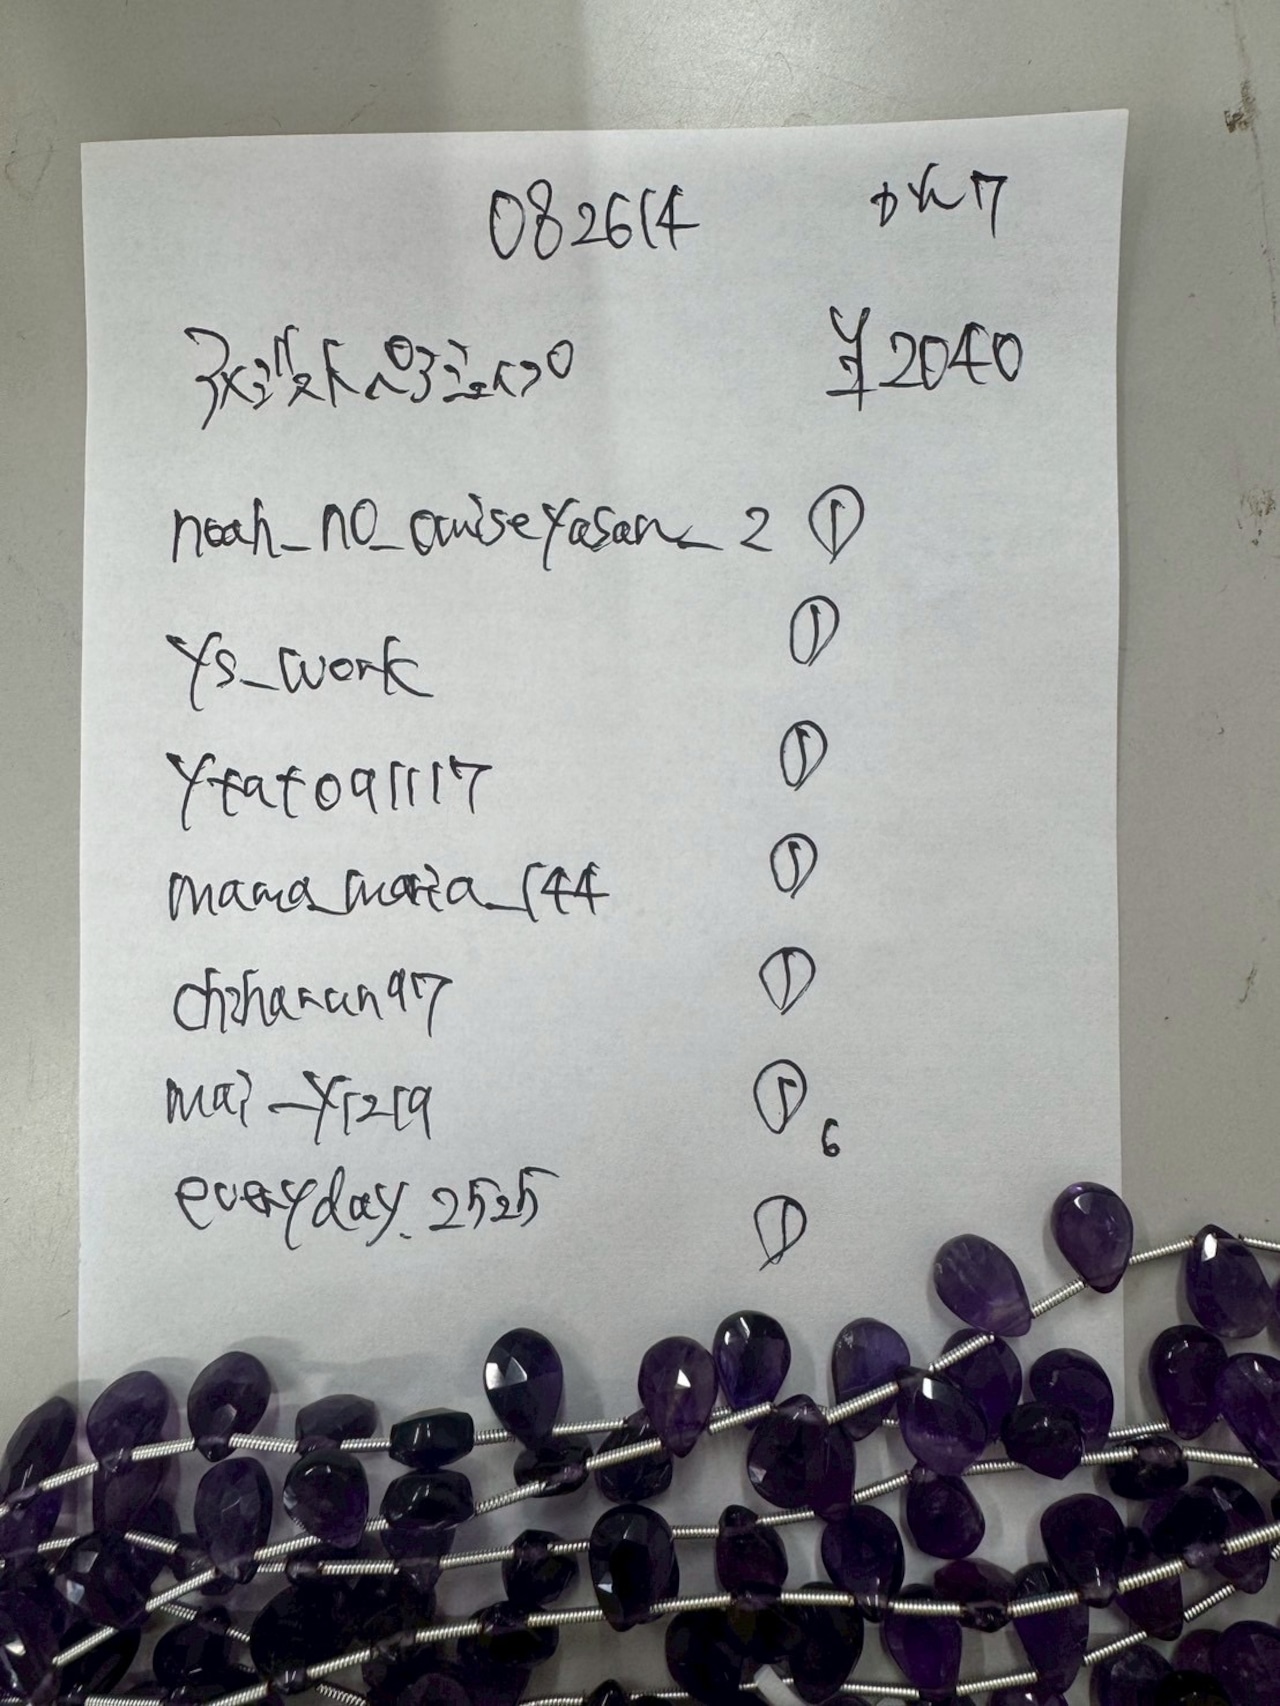 082614
¥2040
noah_no_omiseyasan_2 ①
ys_work ①
ytato091117 ①
mama_maria_144 ①
chiharun97 ①
mai_y1219 ①
6
everyday.2525 ①